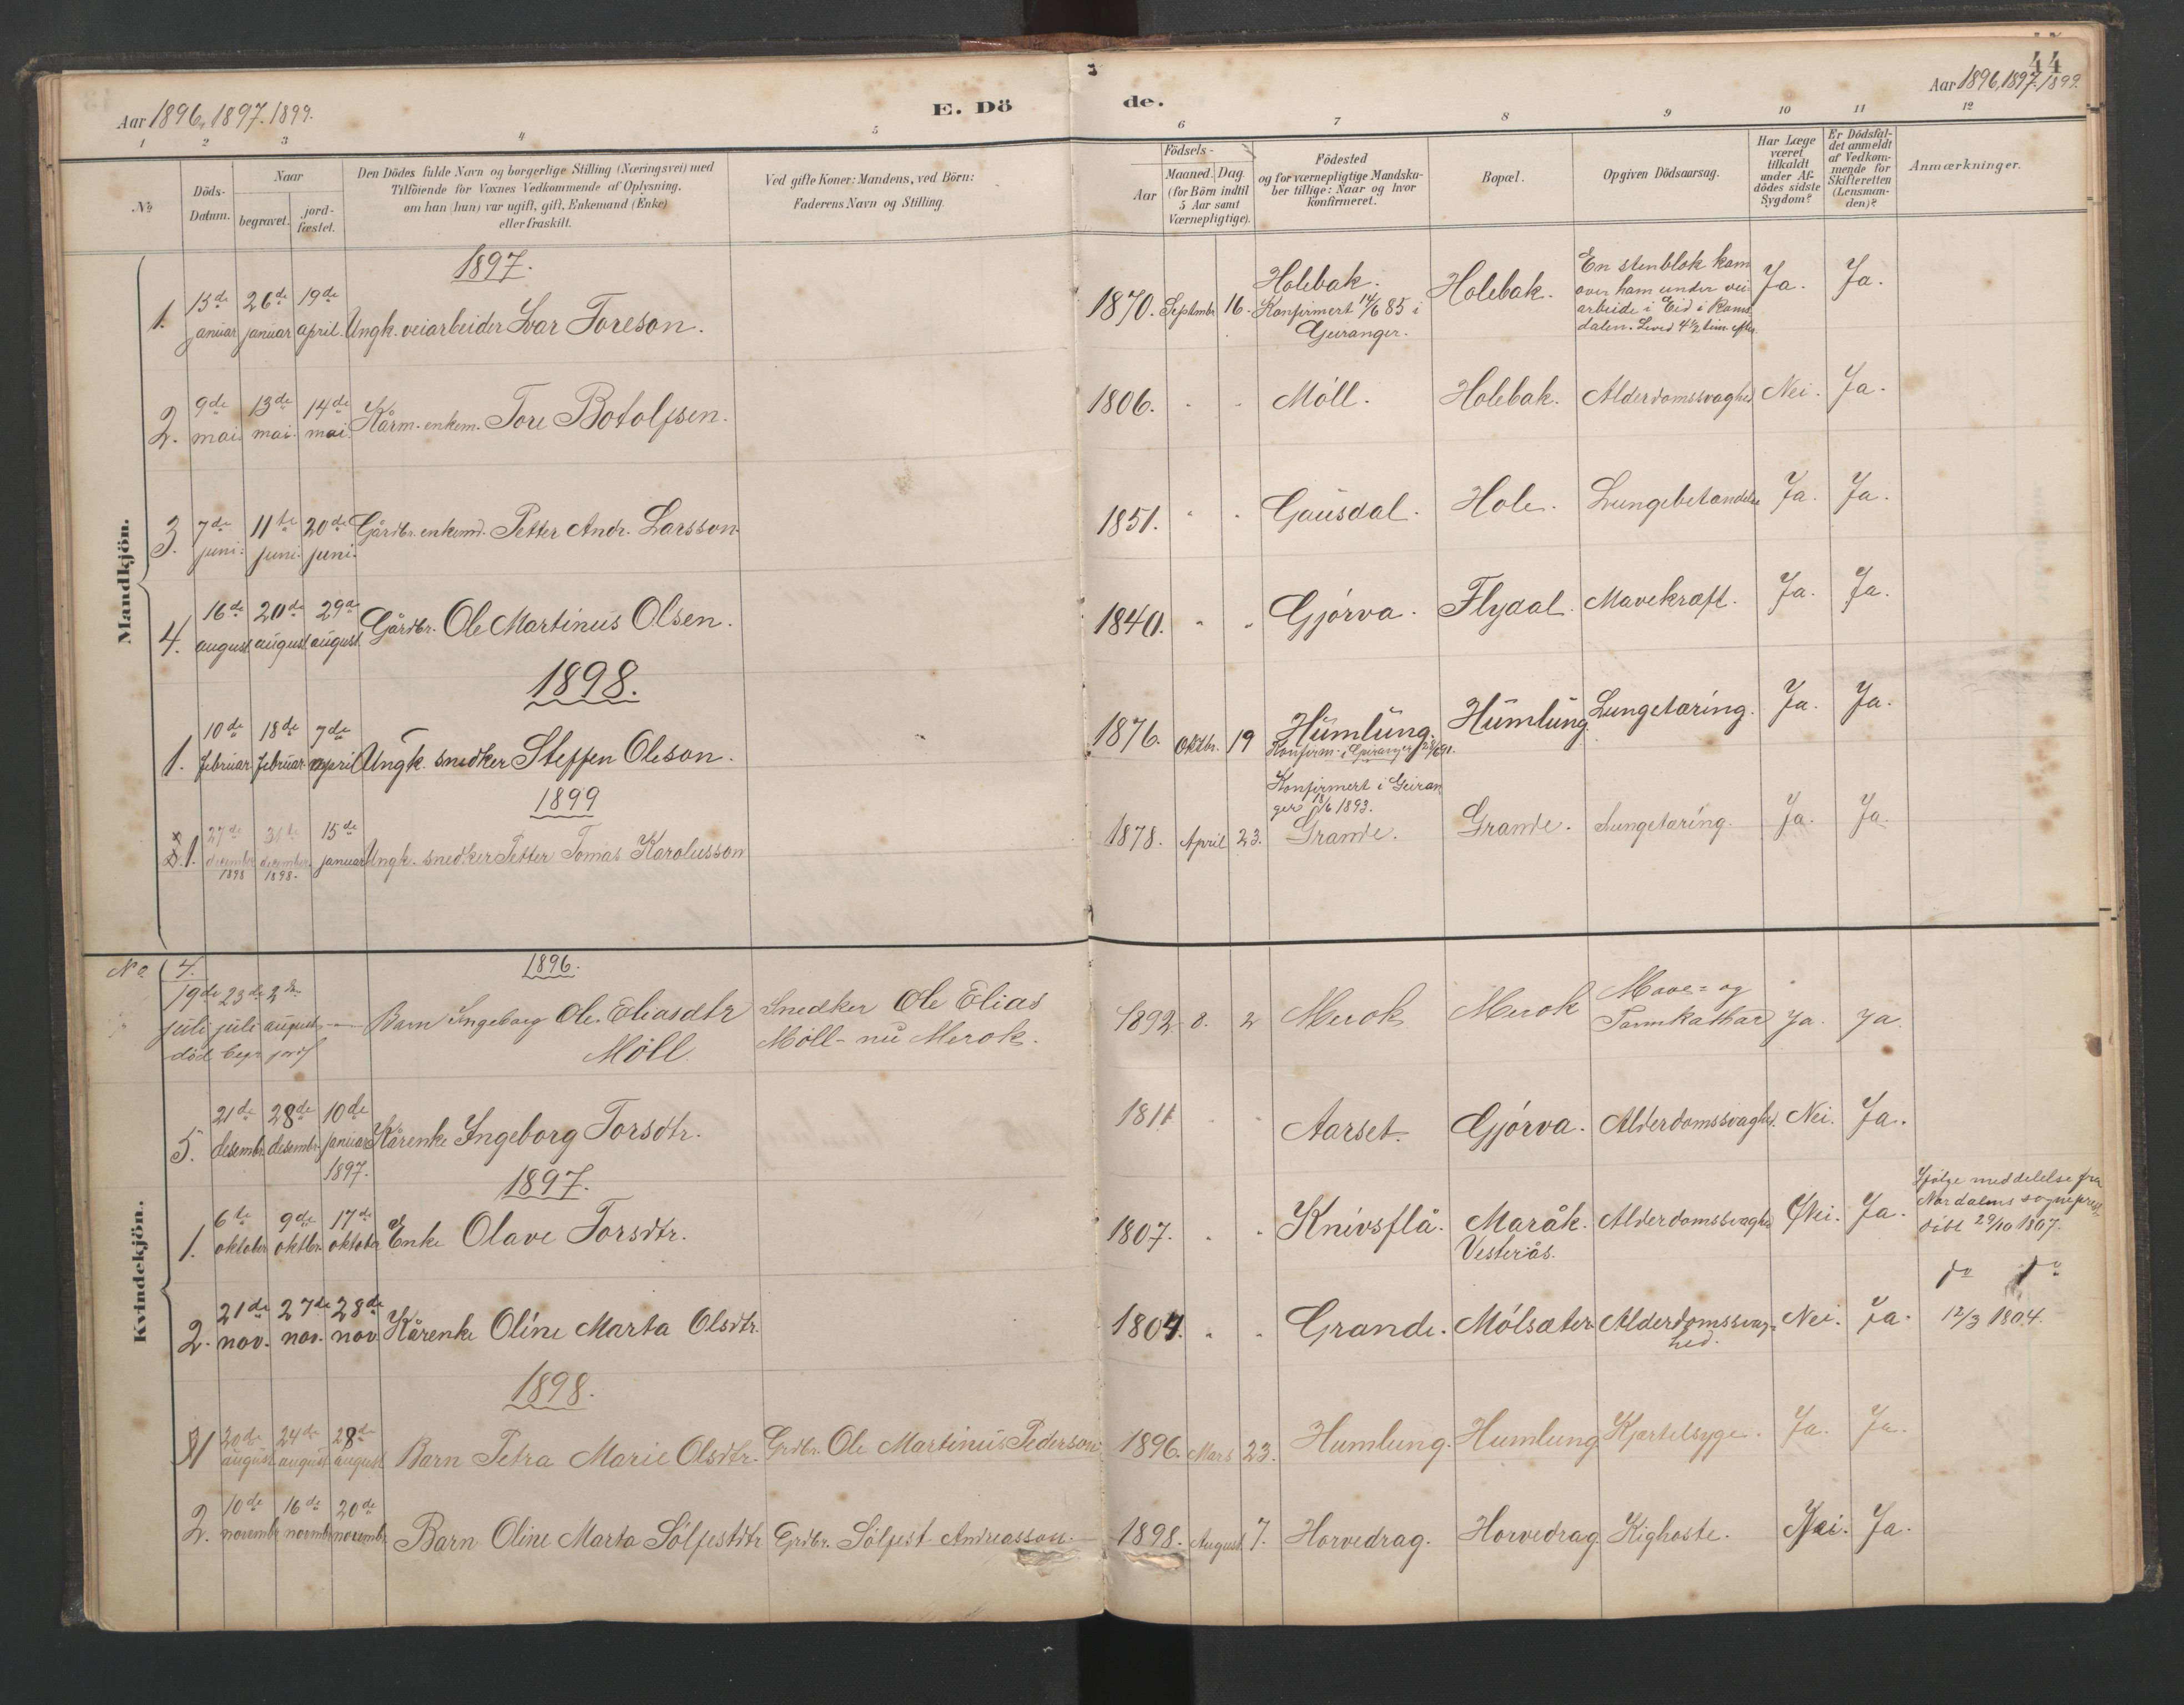 Aar 1896, 1897. 1899.
E. Dö
de.
44
Aar 1896, 1897. 1899.
1 2 3 4 5 6 7 8 9 10 11 12
№
Döds-
Datum.
Naar
begravet.
jord-
fæstet.
Den Dödes fulde Navn og borgerlige Stilling (Næringsvei) med
Tilföiende for Voxnes Vedkommende af Oplysning,
om han (hun) var ugift, gift, Enkemand (Enke)
eller fraskilt.
Ved gifte Koner: Mandens, ved Börn:
Faderens Navn og Stilling.
Födsels-
Aar
Maaned. Dag.
(for Börn indtil
5 Aar samt
Værnepligtige).
Födested
og for værnepligtige Mandska-
ber tillige: Naar og hvor
konfirmeret.
Bopæl.
Opgiven Dödsaarsag.
Har Læge
været
tilkaldt
under Af-
dödes sidste
Sygdom?
Er Dödsfal-
det anmeldt
af Vedkom-
mende for
Skifteretten
(Lensman-
den)?
Anmærkninger.
Mandkjön.
1897.
1. 13de januar 26de januar 19de april. Ungk. veiarbeider Ivar Toreson. 1870. Septmbr. 16. Holebak. Konfirmert 14/6 85 i Geiranger. Holebak. En stenblok kom
over ham under vei
arbeide i Eid i Roms
dalen. Leved 4½ tim. efter. Ja. Ja.
2. 9de mai. 13de mai. 14de mai. Kårm. enkem. Tore Botolfsen. 1806. Möll. Holebak. Alderdomssvaghed Nei. Ja.
3. 7de juni. 11te juni. 20de juni. Gårdbr. enkemd. Petter Andr. Larsson. 1851. Gausdal. Hole. Lungebetændelse Ja. Ja.
4. 16de august 20de august 29de august Gårdbr. Ole Martinus Olsen. 1840. Gjörva. Flydal. Mavekræft. Ja. Ja.
1898.
1. 10de februar 18de februar 7de april Ungk. snedker Steffen Oleson. 1876. Oktbr. 19 Humlung. Konfirm. i Geiranger Humlung. Lungetæring. Ja. Ja.
1899
1. 27de december 1898 31te december 1898. 15de januar Ungk. snedker Petter Tomas Karolusson 1878. April 23. Konfirmert i Geiran
ger 18/6 1893.
Grande. Grande. Lungetæring. Ja. Ja.
Kvindekjön.
No. 4.
1896.
19de juli död 23de juli begr. 2den august jordf Barn Ingeborg Ole. Eliasdtr
Möll. Snedker Ole Elias
Möll - nu Merok. 1892 8. 2 Merok Merok Mave= og
Tarmkathar Ja. Ja.
5. 21de desembr. 28de desembr. 10de januar 1897. Kårenke Ingeborg Torsdtr. 1811 Aarset. Gjörva. Alderdomssvaghed. Nei. Ja.
1897.
1. 6te oktober 9de oktbr. 17de oktober Enke Olave Torsdtr. 1807. Knivsflå. Maråk.
Vesterås. Alderdomssvaghed Nei. Ja. Ifölge meddelelse fra
Nordalens sogneprest,
döbt 29/10 1807.
2. 21de nov. 27de nov. 28de nov. Kårenke Oline Marta Olsdtr. 1804. Grande. Mölsæter. Alderdomssvag=
hed. Nei. Ja. do do
12/3 1804.
1898.
1 20de august 24de august 28de august Barn Petra Marie Olsdtr. Grdbr. Ole Martinus Pederson 1896. Mars 23. Humlung. Humlung. Kjertelsyge. Ja. Ja.
2. 10de novembr. 16de novmbr. 20de novembr. Barn Oline Marta Sölfestdtr. Grdbr. Sölfest Andreasson. 1898. August 7. Horvedrag. Horvedrag. Kighoste. Nei. Ja.